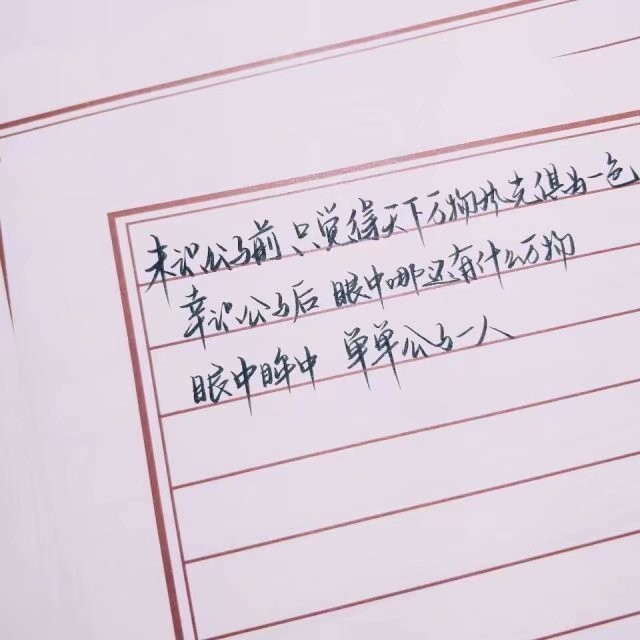 未识公与前 只觉得天下万物外壳俱为一色
幸识公与后 眼中哪还有什么万物
眼中眸中 单单公与一人